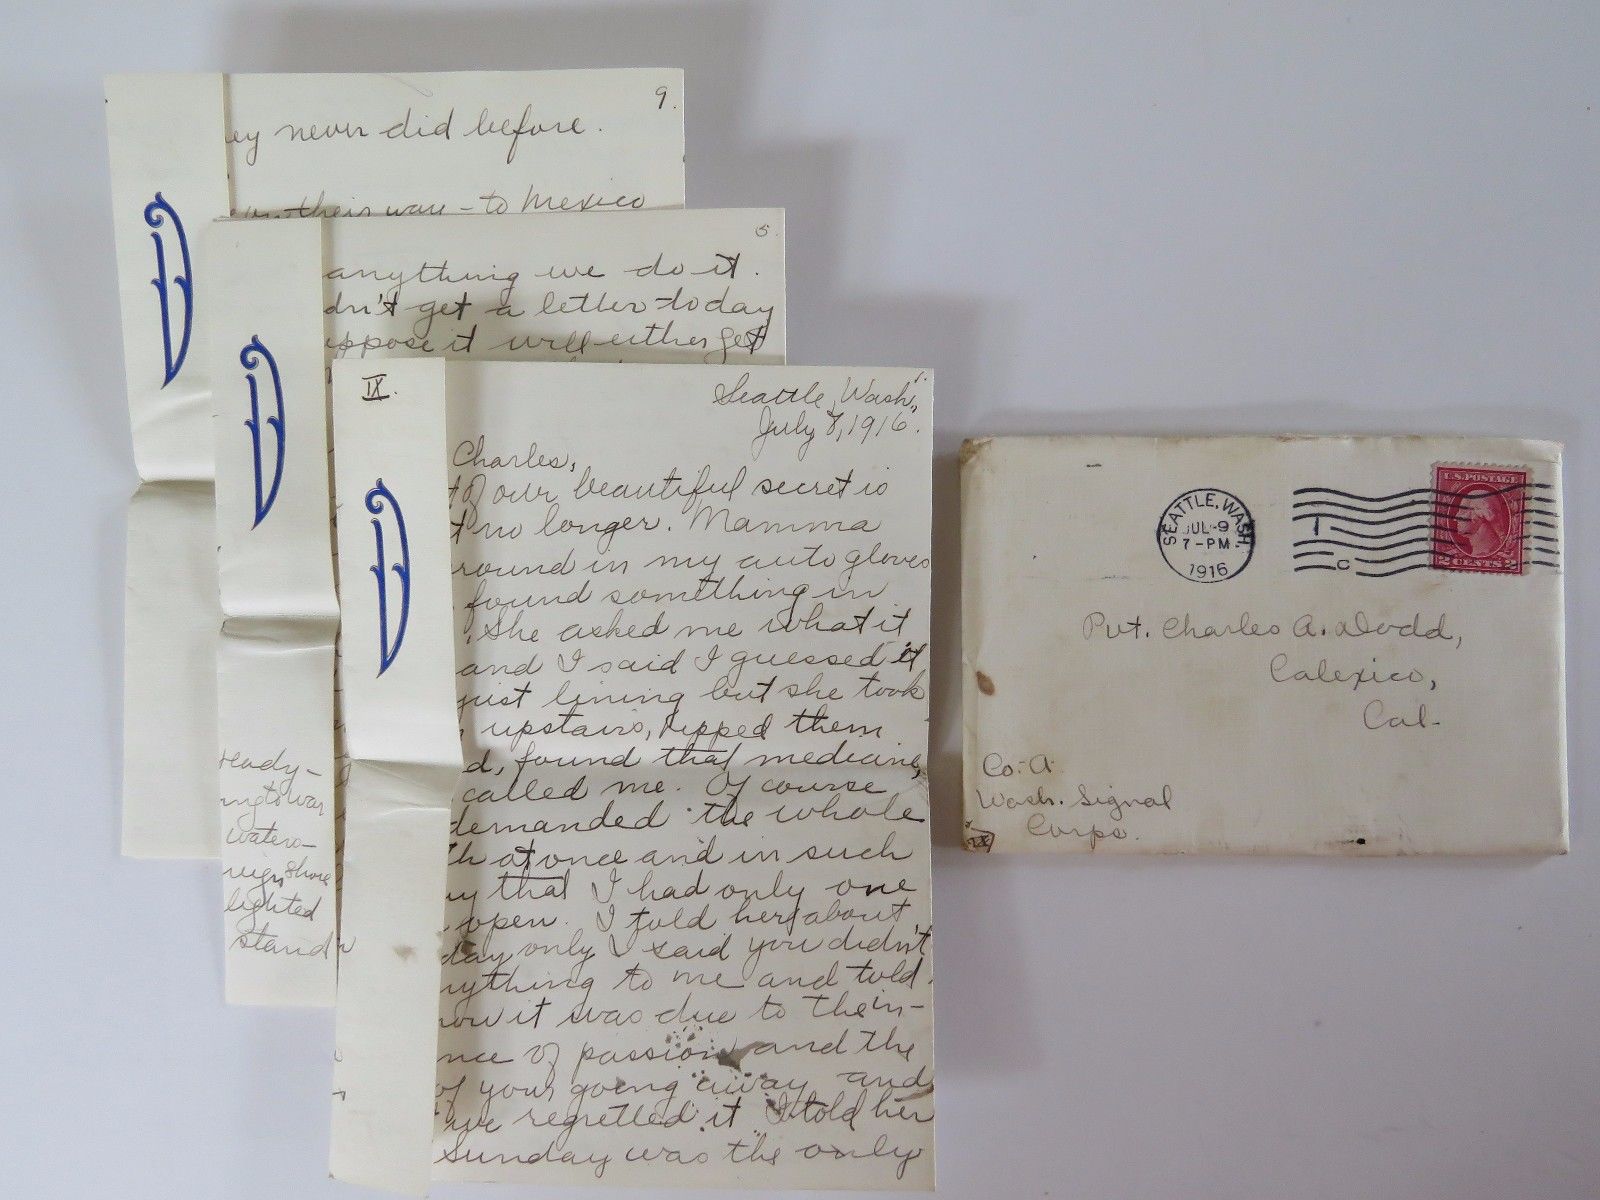 9.
ey never did before.
their way - to Mexico
5.
anything we do it.
dn't get a letter today
ppose it will either get
ready-
ng to war
waters-
reign shore
lighted
stand
IX.
1.
Seattle, Wash.,
July 8, 1916.
Charles,
of our beautiful secret is
t no longer. Mamma
round in my auto gloves
found something in
. She asked me what it
and I said I guessed it
just lining but she took
upstairs, ripped them
d, found that medicine,
called me. Of course
demanded the whole
th at once and in such
ay that I had only one
open. I told her about
day only I said you didn't
nything to me and told
how it was due to the in-
nce of passion and the
of your going away and
we regretted it. I told her
Sunday was the only
SEATTLE, WASH.
JUL-9
7-PM
1916
1
C
U.S. POSTAGE
2 CENTS 2
Pvt. Charles A. Dodd,
Calexico,
Cal.
Co. A
Wash. Signal
Corps.